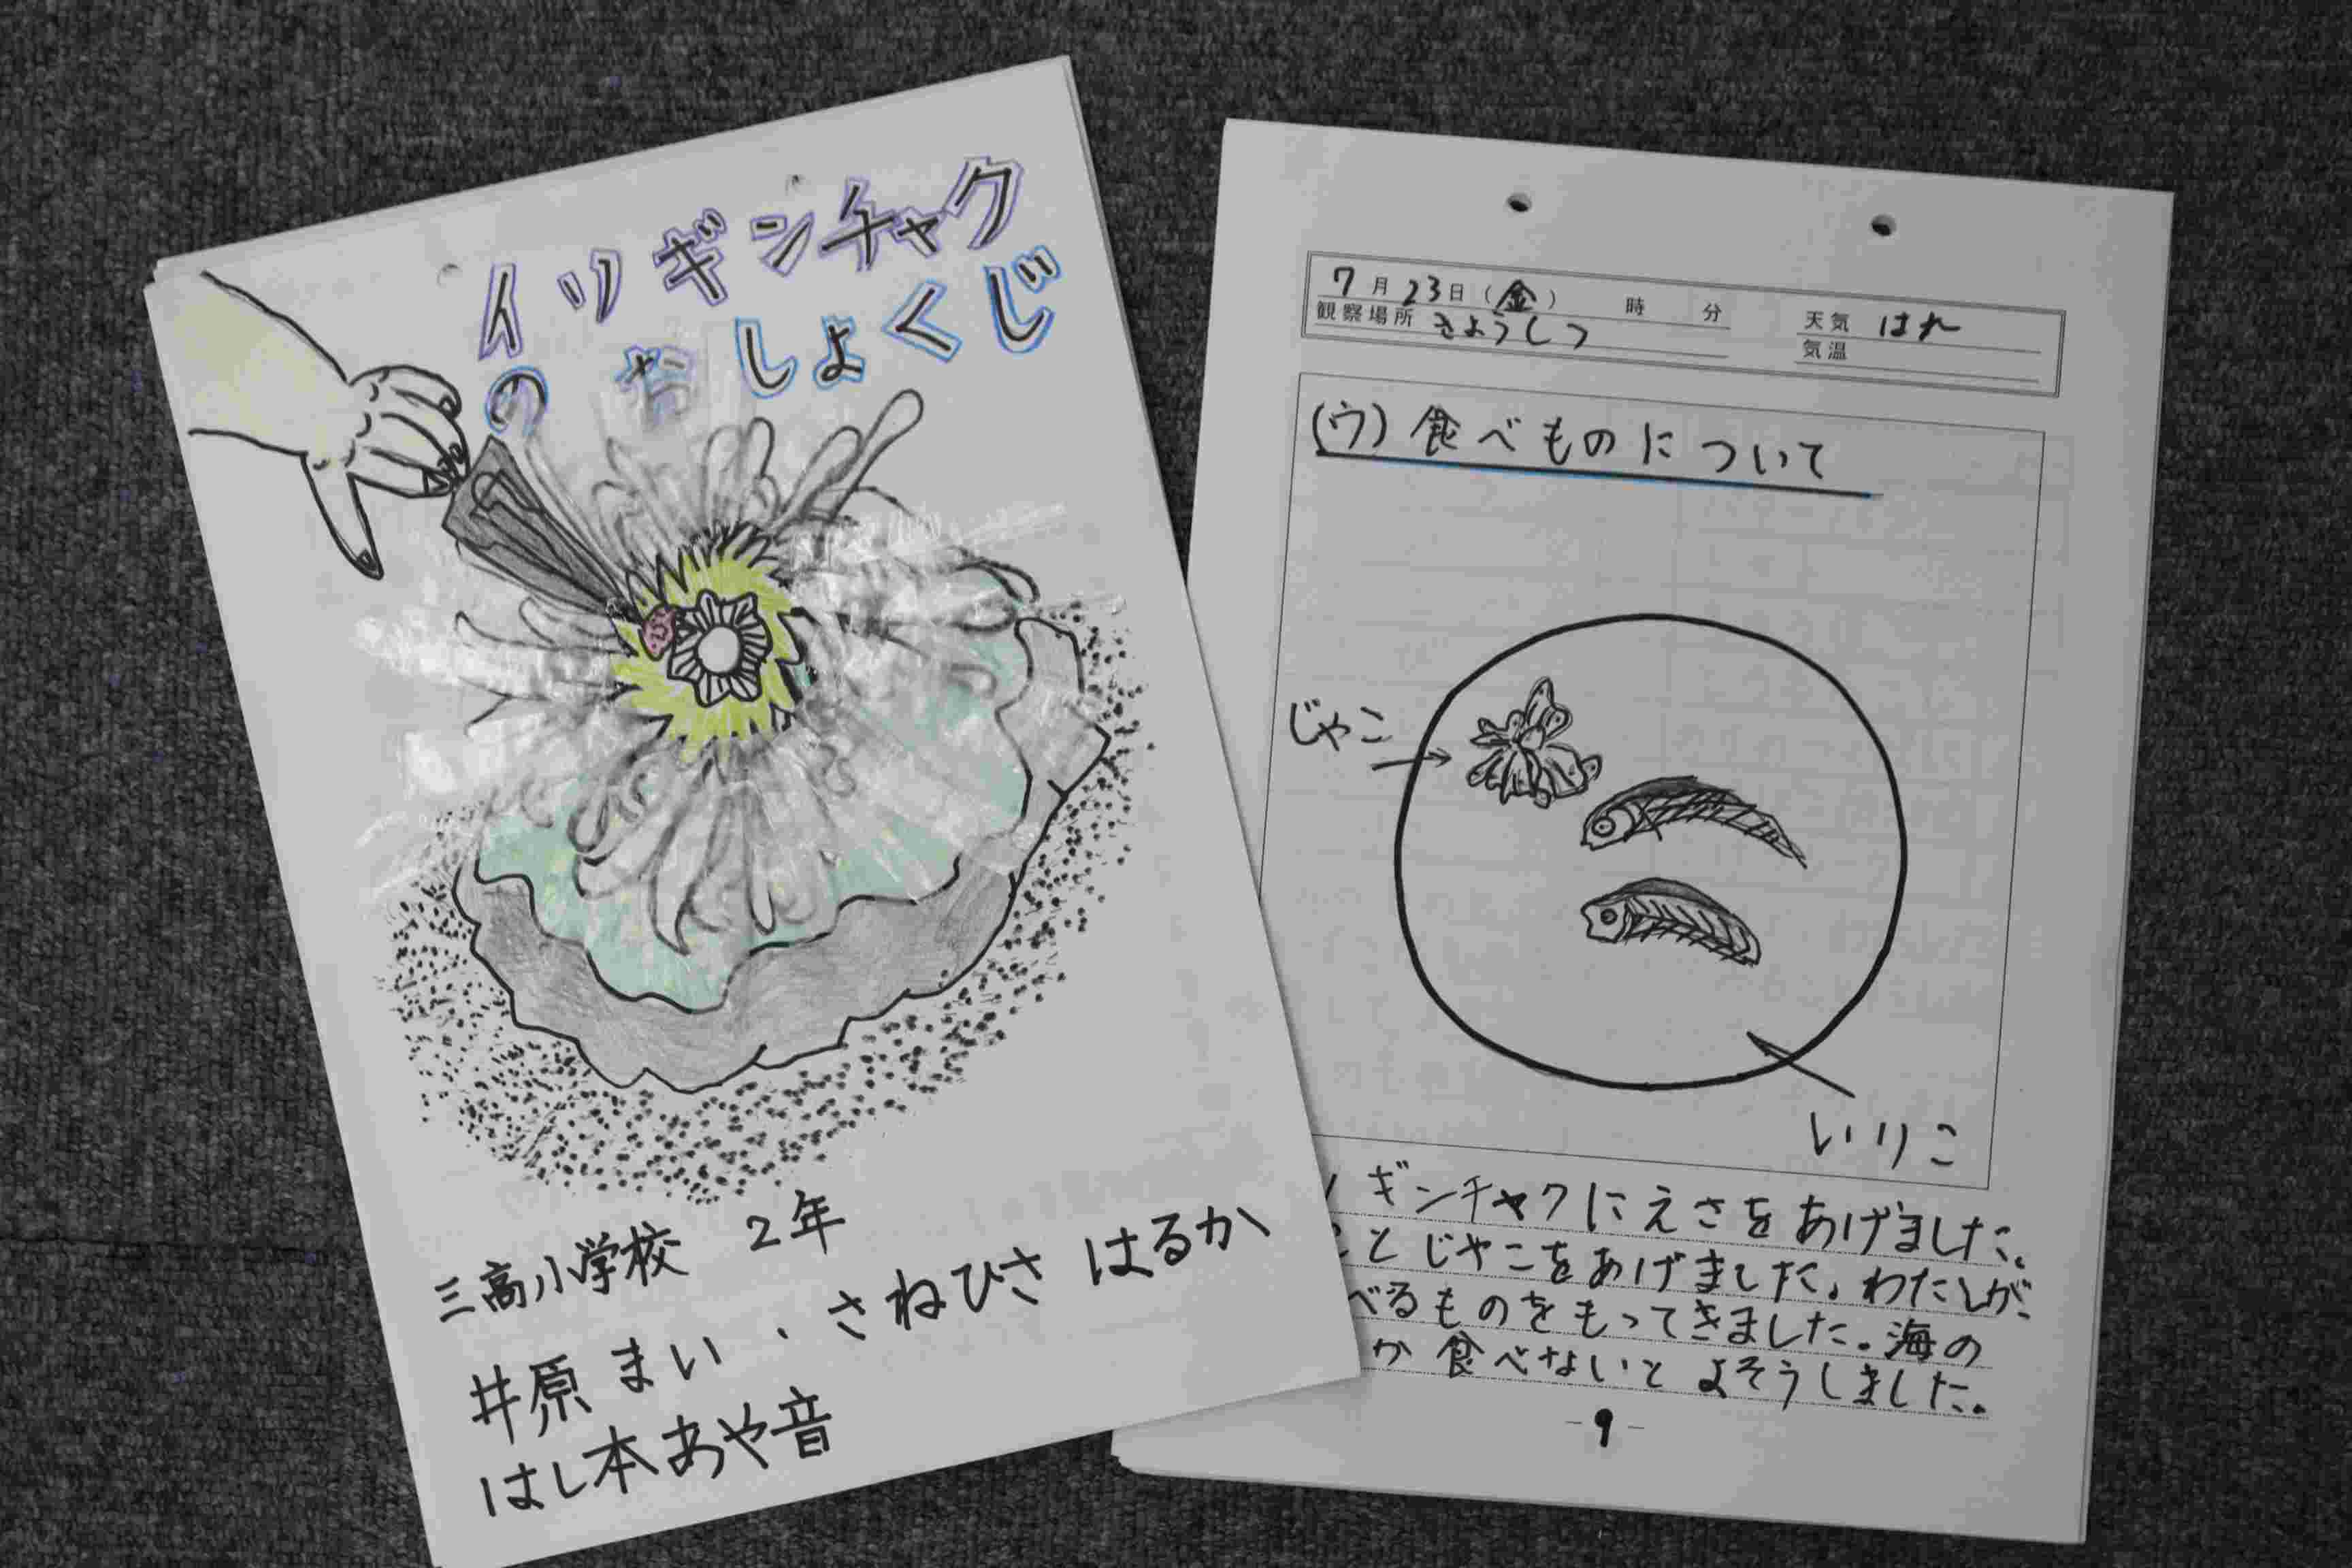 イソギンチャク
のおしょくじ
三高小学校 2年
井原 まい・さねひさ はるか
はし本あや音
7月23日(金) 時 分 天気 はれ
観察場所 きょうしつ 気温
(ウ)食べものについて
じゃこ
いりこ
ギンチャクにえさをあげました。
とじゃこをあげました。わたしが
べるものをもってきました。海の
か食べないとよそうしました。
-9-